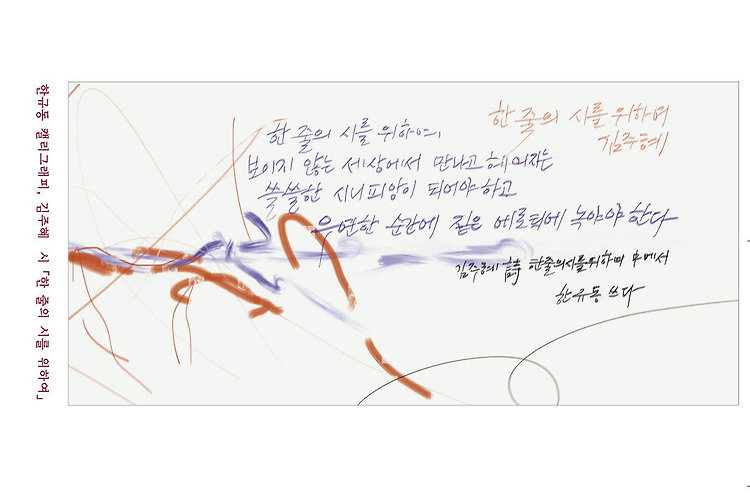 한규동 캘리그래피, 김주혜 시 「한 줄의 시를 위하여」
한 줄의 시를 위하여
김주혜
한 줄의 시를 위하여,
보이지 않는 세상에서 만나고 헤어지는
쓸쓸한 시니피앙이 되어야 하고
우연한 순간에 짙은 에로틱에 녹아야 한다
김주혜 詩 한줄의시를위하여 中에서
한규동 쓰다